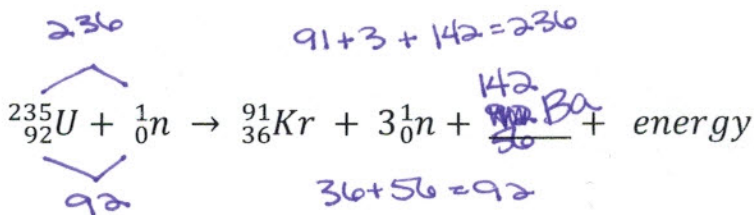 236 91+3+142=236
²³⁵₉₂U + ¹₀n → ⁹¹₃₆Kr + 3¹₀n + ¹⁴²₅₆Ba + energy
92 36+56=92